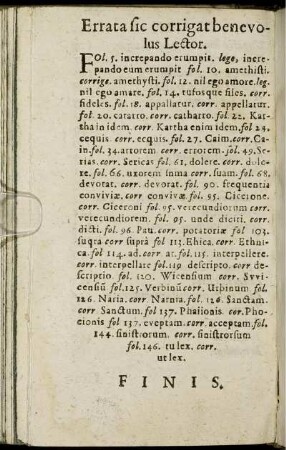 Errata sic corrigat benevo-
lus Lector.
FOl. 5. increpando erumpit. lege, incre-
pando eum erumpit fol. 10. amethisti.
corrige. amethysti. fol. 12. nil ego amore. leg.
nil ego amare. fol. 14. tufosque files. corr.
fideles. fol. 18. appallatur. corr. appellatur.
fol. 20. cararro. corr. catharro. fol. 22. Kar-
tha in idem. corr. Kartha enim idem. fol 24.
cequis. corr. ecquis. fol. 27. Caim. corr. Ca-
in. fol. 34. arrorem. corr. errorem. fol. 49. Se-
rias. corr. Sericas fol. 61. dolere. corr. dole-
re. fol. 66. uxorem inma corr. suam. fol. 68.
devotat. corr. devorat. fol. 90. frequentia
conviviæ. corr convivæ. fol. 95. Cicerone.
corr. Ciceroni fol. 95. verecundiorm corr.
verecundiorem. fol. 95. unde diciti. corr.
dicti. fol. 96. Pau. corr. potatoriæ fol 103.
suqra corr suprà fol 113. Ehica. corr. Ethni-
ca. fol 114. ad. corr at. fol. 115. interpellere.
corr interpellare fol. 119 descripto. corr de-
scriptio fol. 120. Wicensum corr. Svvi-
censiũ fol. 125. Verbinũ corr. Urbinum fol.
126. Naria. corr Narnia. fol. 126. Sanctam.
corr Sanctum. fol 137. Phalionis cor. Pho-
cionis fol 137. eveptam. corr acceptam. fol.
144. sinistrorum. corr sinistrorsum
fol. 146. tu lex. corr.
ut lex.
FINIS.